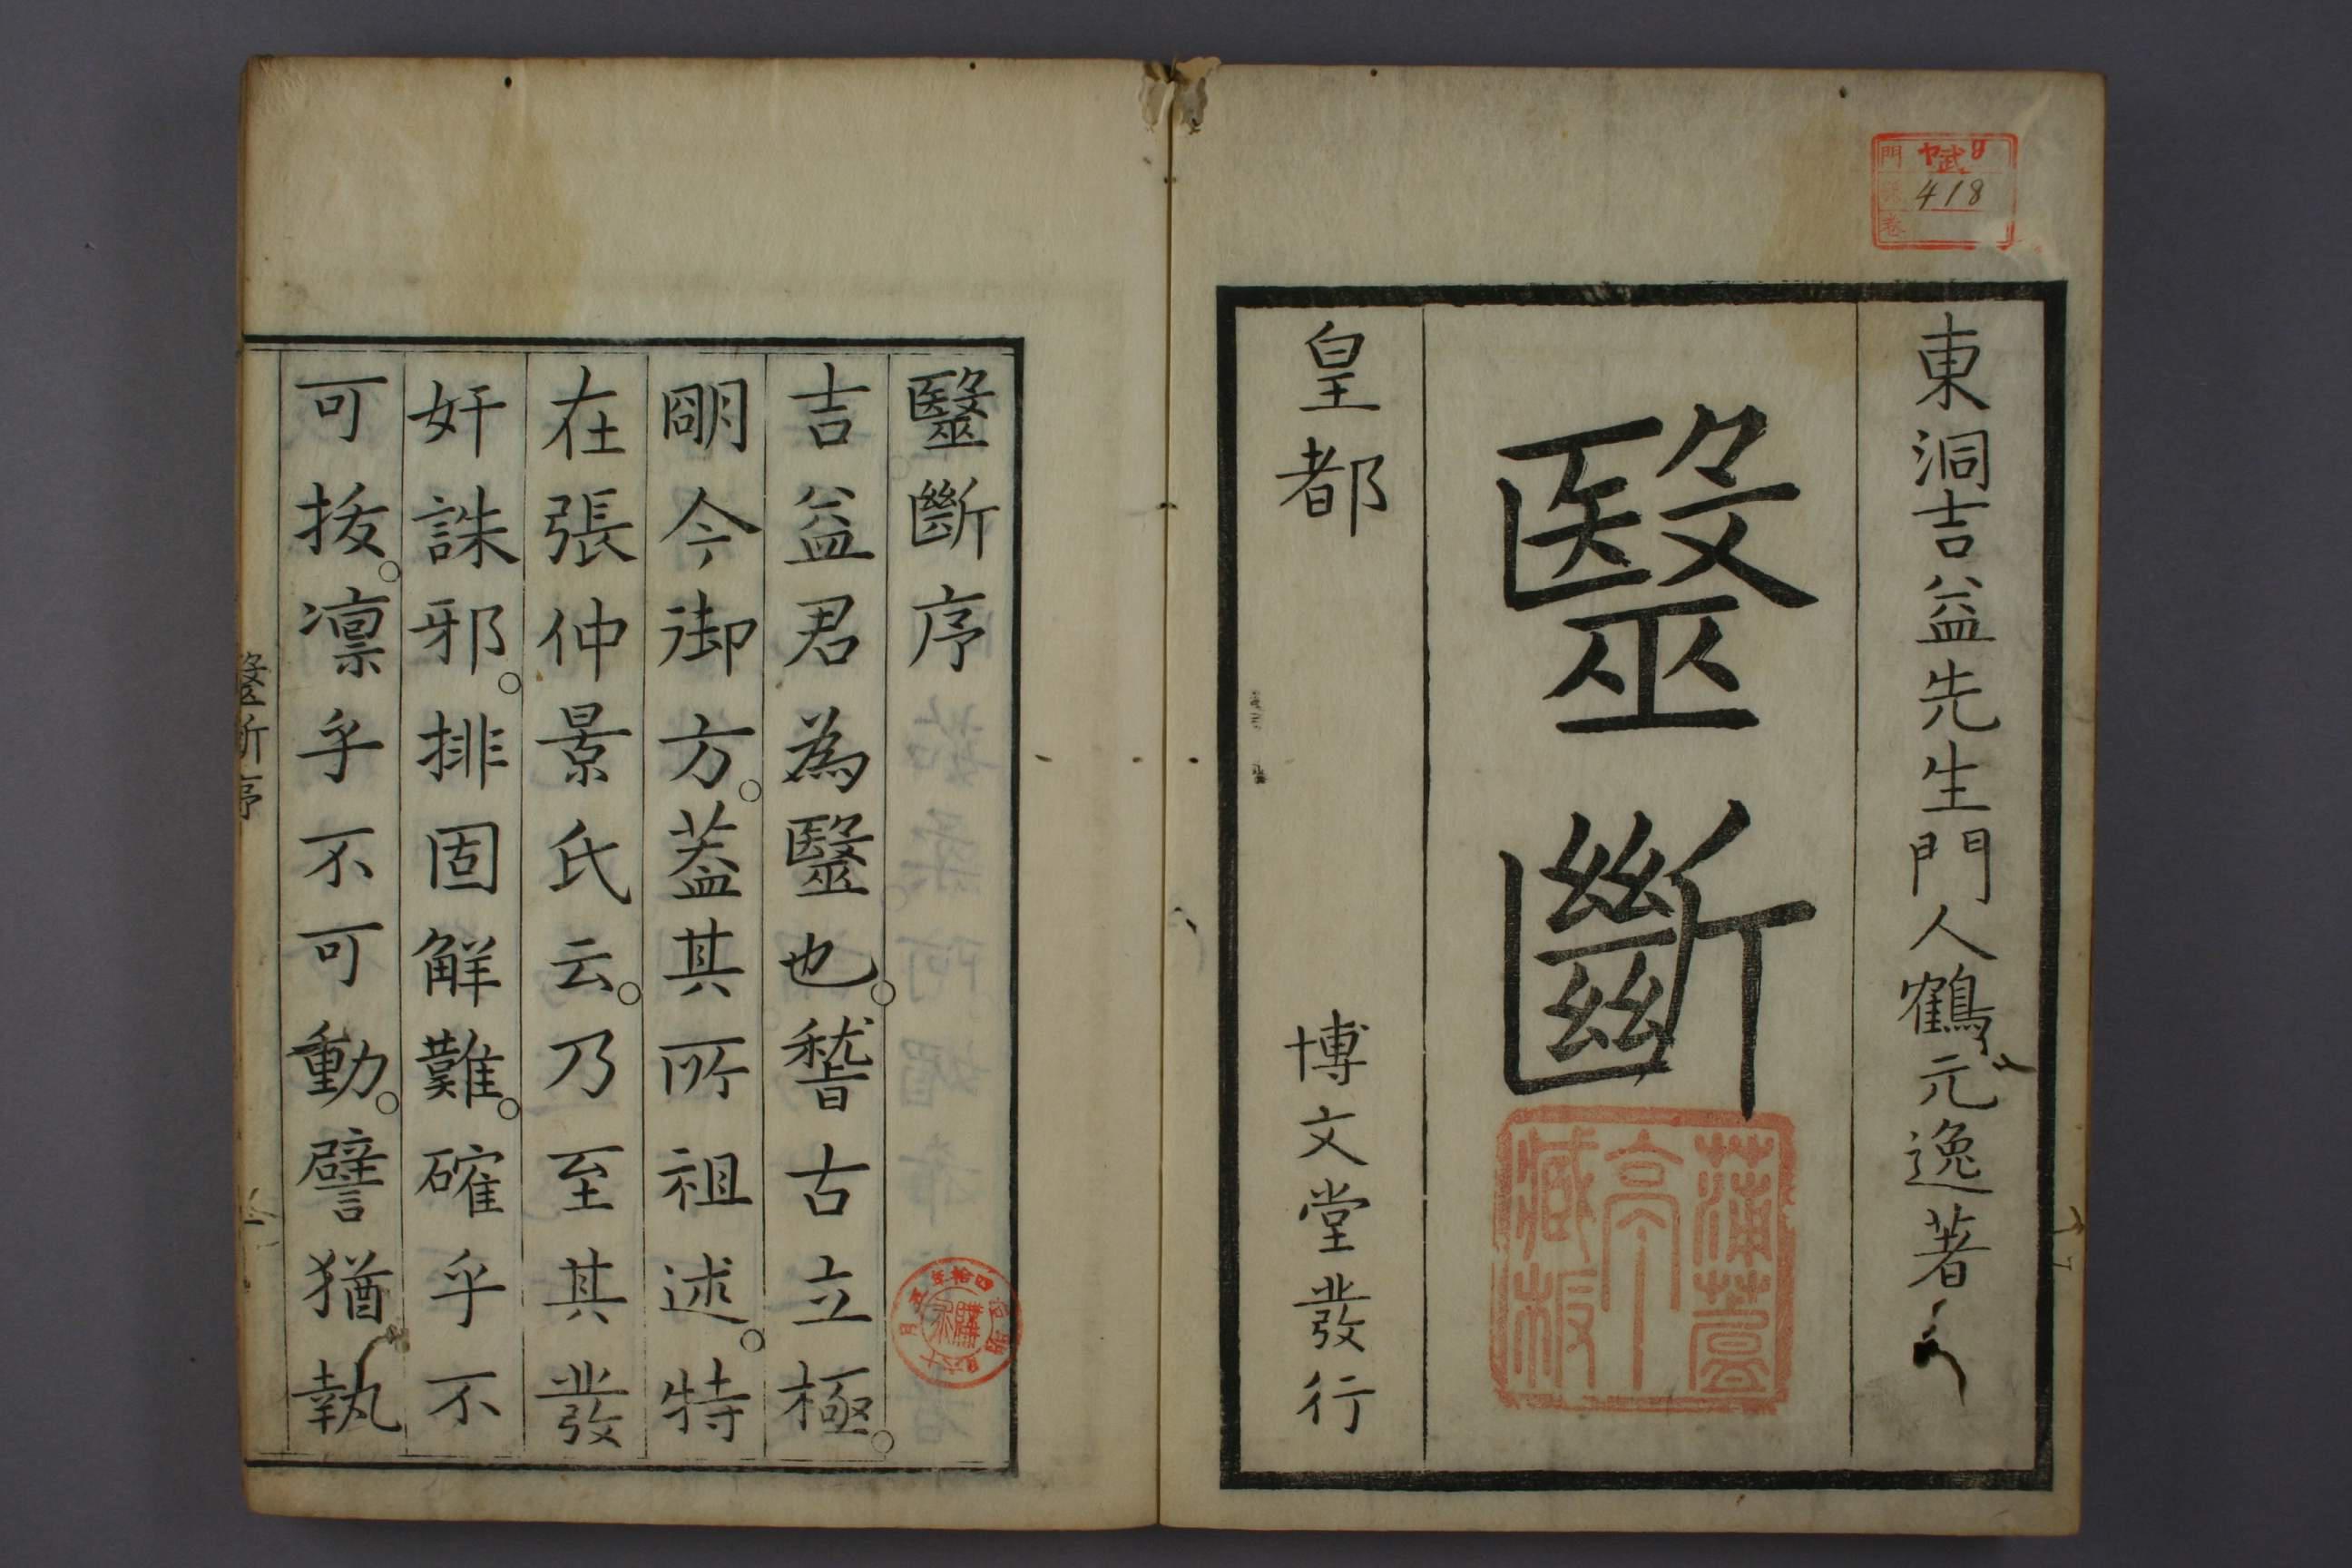 東洞吉益先生門人鶴元逸著
毉斷
皇都 博文堂發行
蒲薹
亭
臧板
門
卷
418
毉斷序
吉益君為毉也。稽古立極。
朙今御方。葢其所祖述。特
在張仲景氏云。乃至其發
奸誅邪。排固解難。確乎不
可拔。凛乎不可動。譬猶執
毉斷序